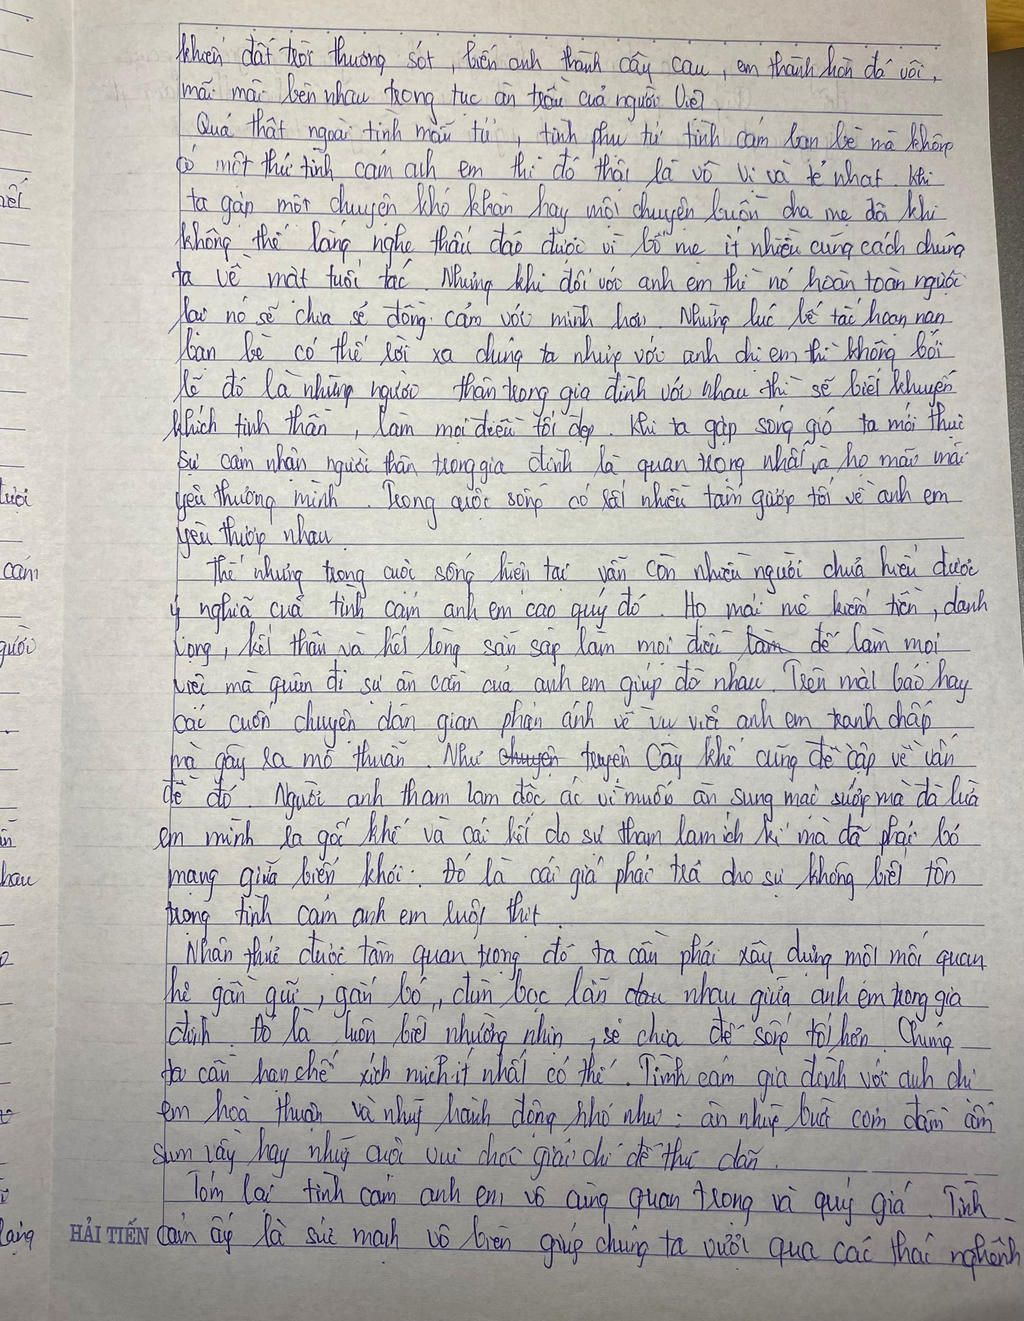 khiến đất trời thương sót, biến anh thành cây cau, em thành hòn đá vôi,
mãi mãi bên nhau trong tục ăn trầu của người Việt
Quả thật ngoài tình mẫu tử, tình phụ tử tình cảm bạn bè mà không
có một thứ tình cảm anh em thì đó thật là vô vị và tẻ nhạt. Khi
ta gặp một chuyện khó khăn hay một chuyện buồn cha mẹ đôi khi
không thể lắng nghe thấu đáo được vì bố mẹ ít nhiều cũng cách chúng
ta về mặt tuổi tác. Nhưng khi đối với anh em thì nó hoàn toàn ngược
lại nó sẽ chia sẻ đồng cảm với mình hơn. Những lúc bế tắc hoạn nạn
bạn bè có thể rời xa chúng ta nhưng với anh chị em thì không bởi
lẽ đó là những người thân trong gia đình với nhau thì sẽ biết khuyến
khích tinh thần, làm mọi điều tốt đẹp. Khi ta gặp sóng gió ta mới thực
sự cảm nhận người thân trong gia đình là quan trọng nhất và họ mãi mãi
yêu thương mình. Trong cuộc sống có rất nhiều tấm gương tốt về anh em
yêu thương nhau.
Thế nhưng trong cuộc sống hiện tại vẫn còn nhiều người chưa hiểu được
ý nghĩa của tình cảm anh em cao quý đó. Họ mải mê kiếm tiền, danh
vọng, kết thân và hết lòng sẵn sàng làm mọi điều làm để làm mọi
việc mà quên đi sự ân cần của anh em giúp đỡ nhau. Trên mặt báo hay
các cuốn chuyện dân gian phản ánh về vụ việc anh em tranh chấp
mà gây ra mô thuẫn. Như chuyện truyện Cây khế cũng đề cập về vấn
đề đó. Người anh tham lam độc ác vì muốn ăn sung mặc sướng mà đã lừa
em mình ra gốc khế và cái kết do sự tham lam ích kỉ mà đã phải bỏ
mạng giữa biển khơi. Đó là cái giá phải trả cho sự không biết tôn
trọng tình cảm anh em ruột thịt
Nhận thức được tầm quan trọng đó ta cần phải xây dựng một mối quan
hệ gần gũi, gắn bó, đùm bọc lẫn đau nhau giữa anh em trong gia
đình. Đó là luôn biết nhường nhịn, sẻ chia để sống tốt hơn. Chúng
ta cần hạn chế xích mích ít nhất có thể. Tình cảm gia đình với anh chị
em hoà thuận và những hành động nhỏ như: ăn những bữa cơm đầm ấm
sum vầy hay những cuộc vui chơi giải chí để thư dãn.
Tóm lại tình cảm anh em vô cùng quan trọng và quý giá. Tình
HẢI TIẾN cảm ấy là sức mạnh vô biên giúp chúng ta vượt qua các thác nghềnh